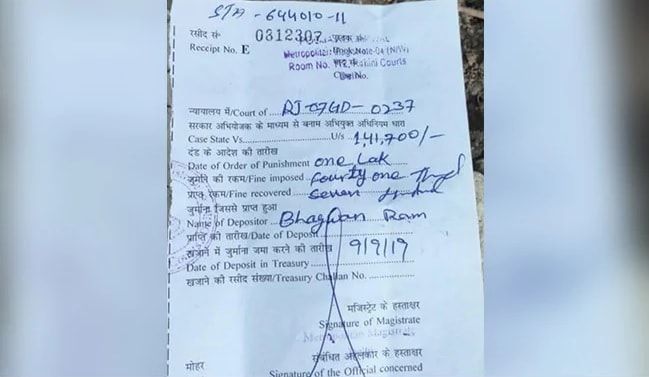 STA - 644010-11
रसीद सं०
Receipt No. E 0312307
Room No. Rohini Courts
न्यायालय में/Court of RJ-07GD-0237
सरकार अभियोजक के माध्यम से बनाम अभियुक्त अधिनियम धारा
Case State Vs. U/s 1,41,700/-
दंड के आदेश की तारीख
Date of Order of Punishment one Lak
जुर्माने की रकम/Fine imposed fourty one
प्राप्त रकम/Fine recovered seven
जुर्माना जिससे प्राप्त हुआ
Name of Depositor Bhagwan Ram
प्राप्ति की तारीख/Date of Deposit
खजाने में जुर्माना जमा करने की तारीख 9/9/19
Date of Deposit in Treasury
खजाने की रसीद संख्या/Treasury Challan No.
मजिस्ट्रेट के हस्ताक्षर
Signature of Magistrate
Metropolitan Magistrate
संबंधित अहलकार के हस्ताक्षर
मोहर Signature of the Official concerned